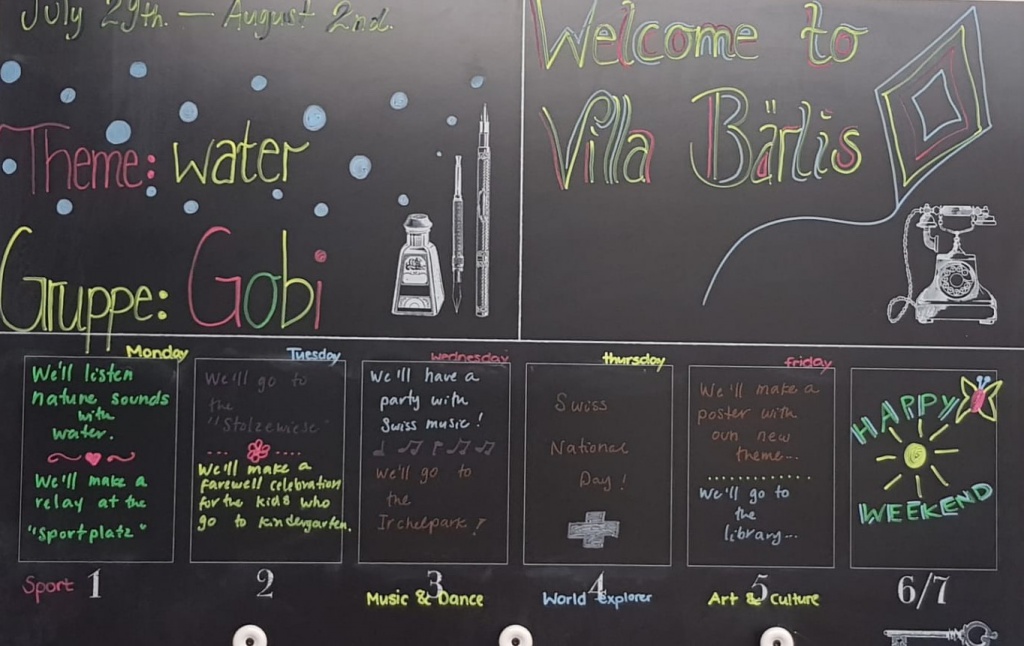 July 29th. — August 2nd.
Theme: water
Gruppe: Gobi
Welcome to
Villa Bärlis
Monday
We'll listen
nature sounds
with
water.
We'll make a
relay at the
"Sportplatz"
Sport 1
Tuesday
We'll go to
the
"Stolzewiese"
We'll make a
farewell celebration
for the kids who
go to kindergarten.
2
wednesday
We'll have a
party with
Swiss music!
We'll go to
the
Irchelpark!
3
Music & Dance
thursday
Swiss
National
Day!
4
World explorer
friday
We'll make a
poster with
our new
theme...
We'll go to
the
library...
5
Art & Culture
HAPPY
WEEKEND
6/7